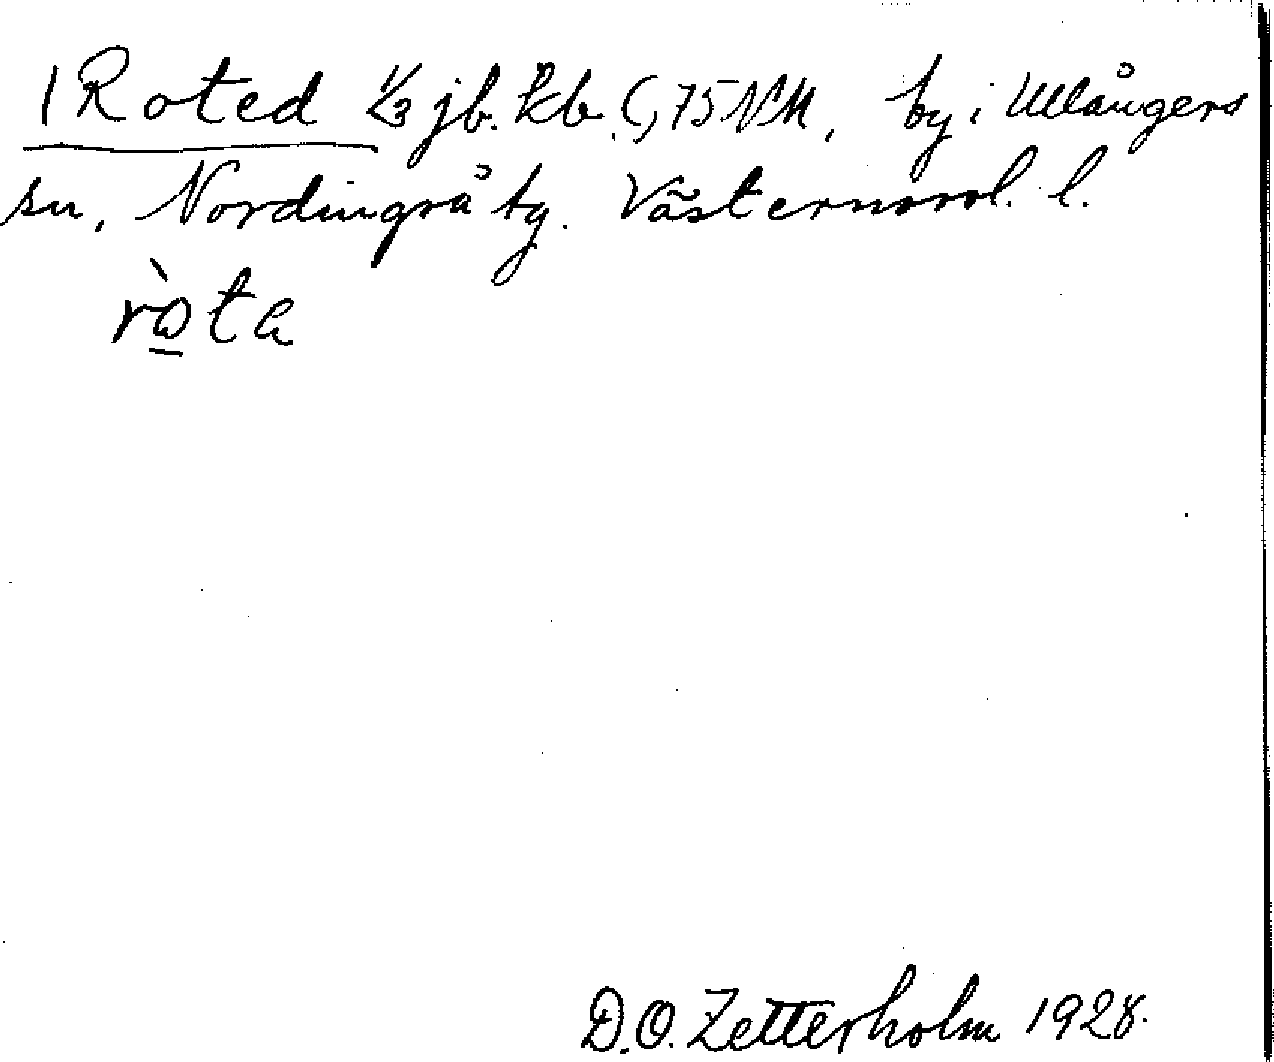 1 Roted 1/3 jb. kb. C, 75 NM, by i Ullångers
sn, Nordingrå tg. Västernorrl. l.
ròta
D.O. Zetterholm 1928.